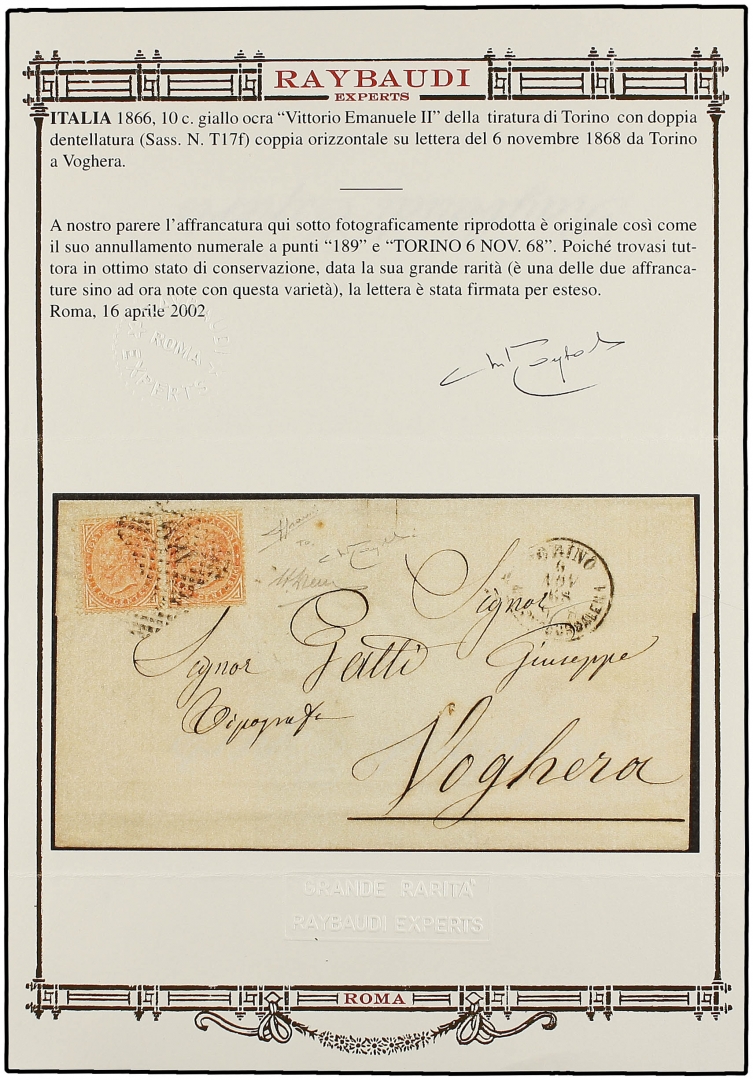 RAYBAUDI
EXPERTS
ITALIA 1866, 10 c. giallo ocra “Vittorio Emanuele II” della tiratura di Torino con doppia
dentellatura (Sass. N. T17f) coppia orizzontale su lettera del 6 novembre 1868 da Torino
a Voghera.
A nostro parere l’affrancatura qui sotto fotograficamente riprodotta è originale così come
il suo annullamento numerale a punti “189” e “TORINO 6 NOV. 68”. Poiché trovasi tut-
tora in ottimo stato di conservazione, data la sua grande rarità (è una delle due affranca-
ture sino ad ora note con questa varietà), la lettera è stata firmata per esteso.
Roma, 16 aprile 2002
ROMA
EXPERTS
TORINO
6
NOV
68
Signor
Signor Gatti Giuseppe
Tipografo
Voghera
GRANDE RARITA'
RAYBAUDI EXPERTS
ROMA